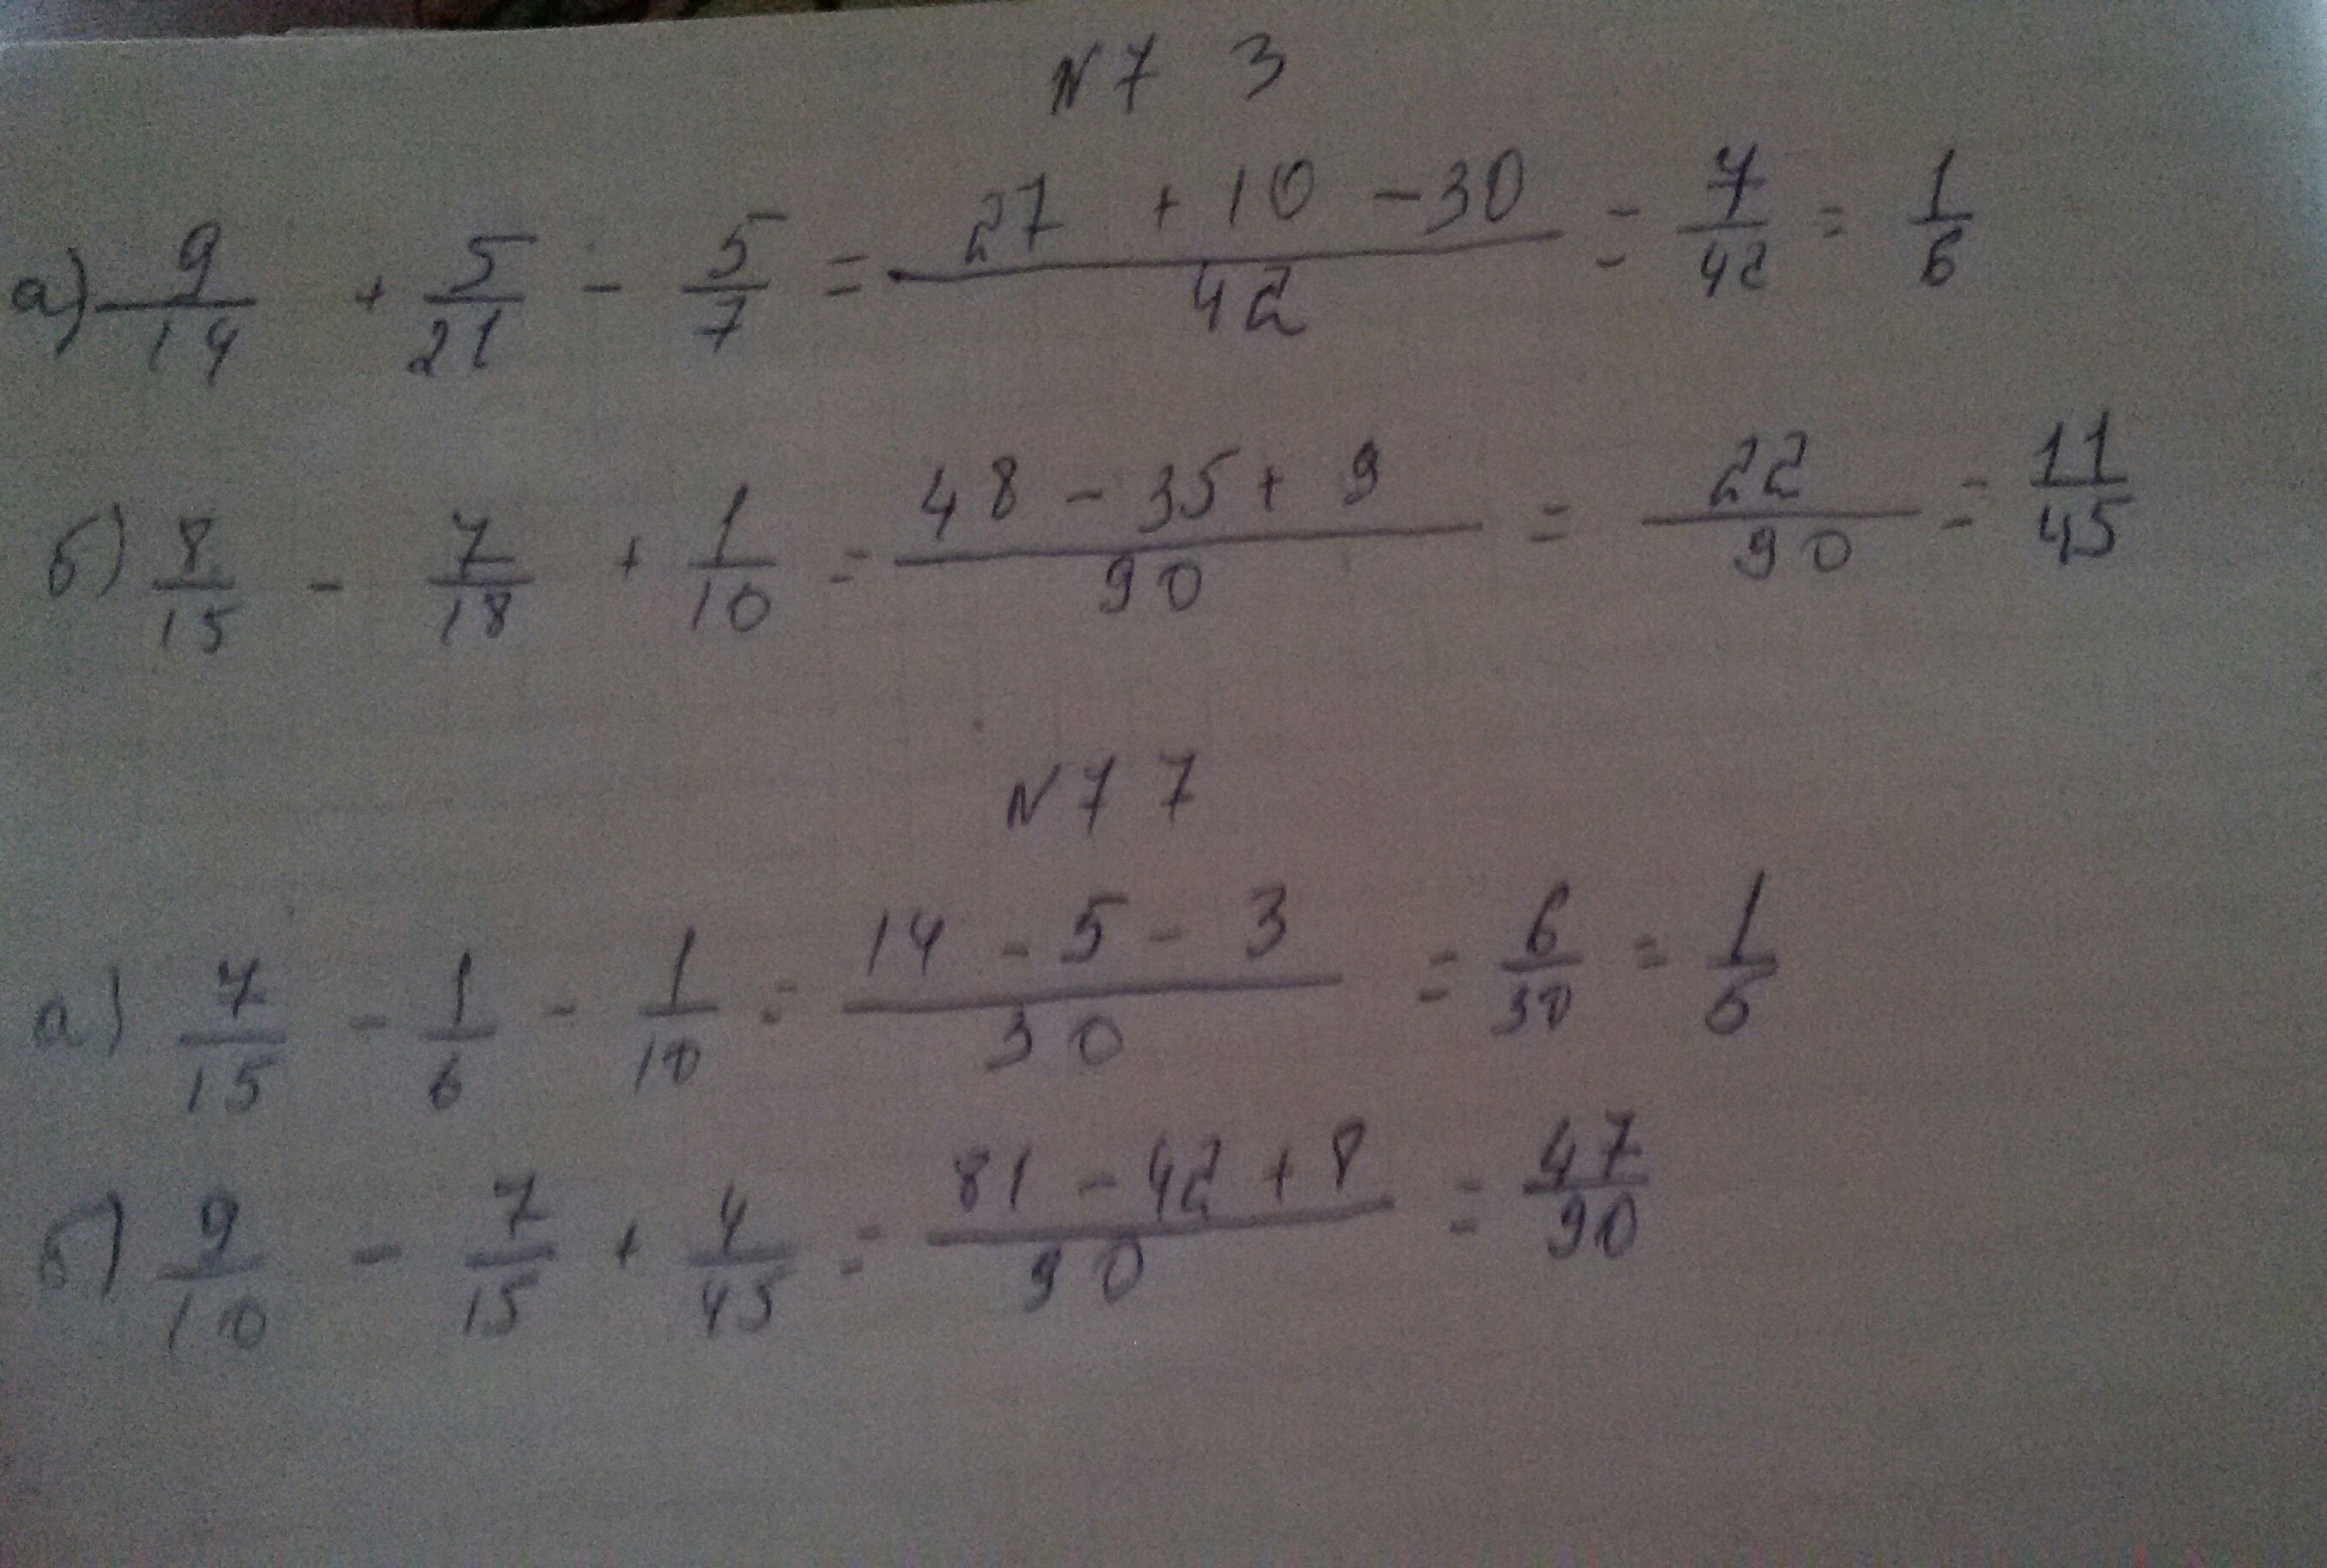 N7 3
а) 9/14 + 5/21 - 5/7 = (27 + 10 - 30)/42 = 7/42 = 1/6
б) 8/15 - 7/18 + 1/10 = (48 - 35 + 9)/90 = 22/90 = 11/45
N7 7
а) 7/15 - 1/6 - 1/10 = (14 - 5 - 3)/30 = 6/30 = 1/5
б) 9/10 - 7/15 + 4/45 = (81 - 42 + 8)/90 = 47/90